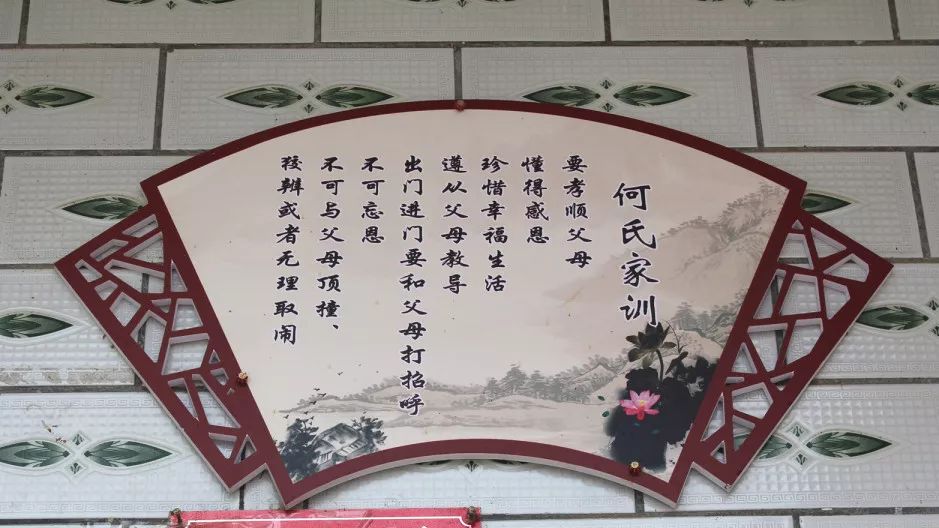 何氏家训
要孝顺父母
懂得感恩
珍惜幸福生活
遵从父母教导
出门进门要和父母打招呼
不可忘恩
不可与父母顶撞、
狡辨或者无理取闹